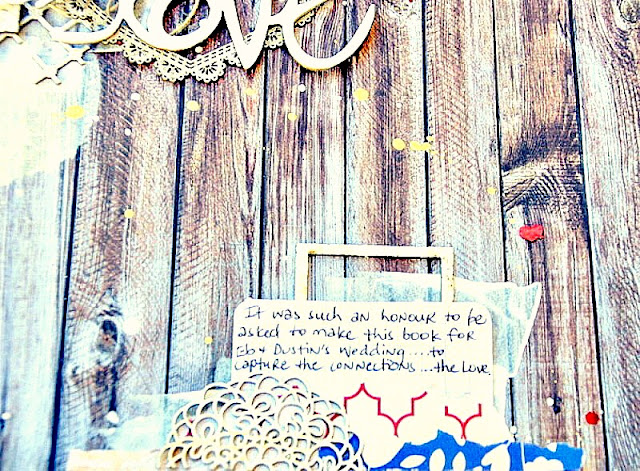 love
It was such an honour to be
asked to make this book for
Eb & Dustin's wedding....to
capture the connections...the love